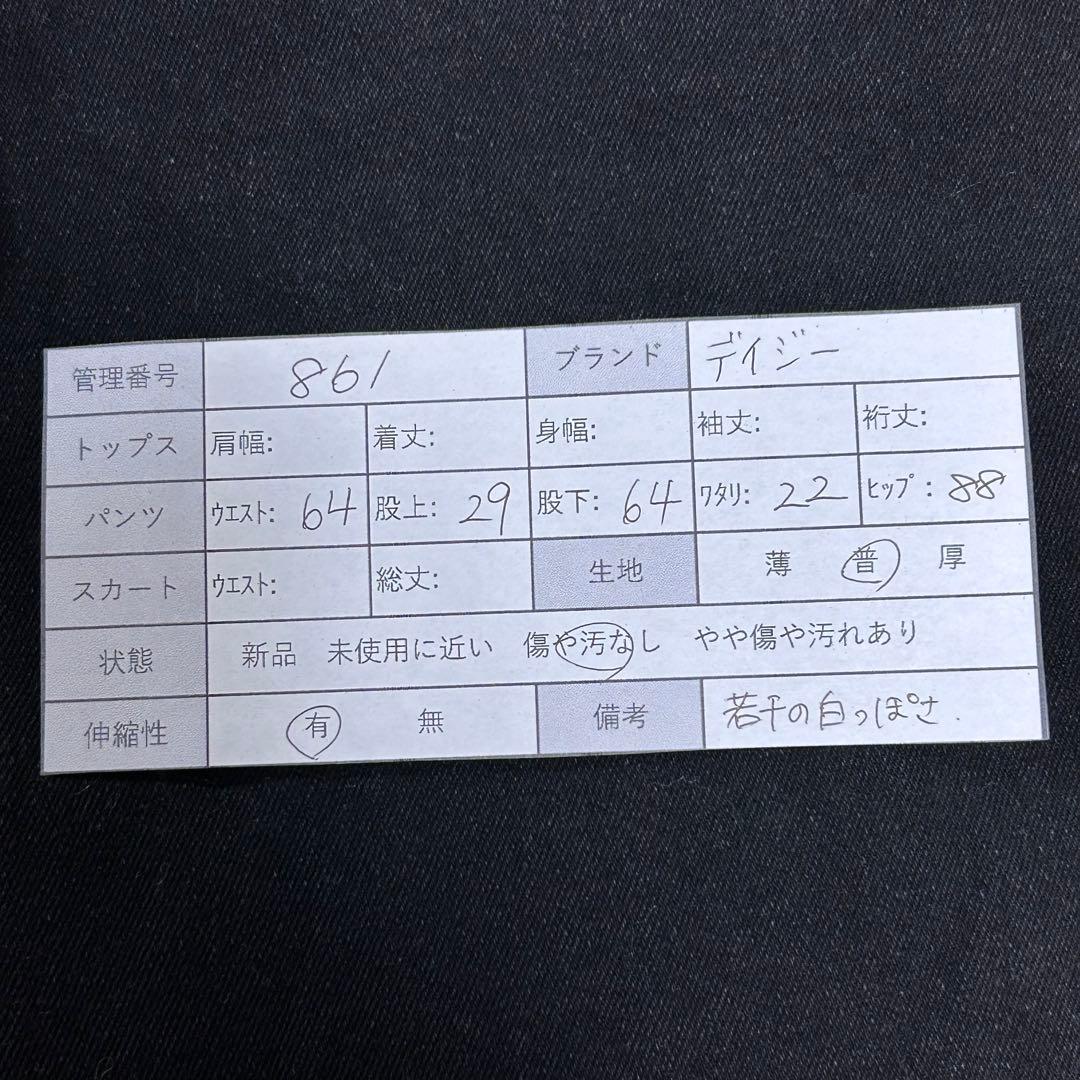 管理番号 861 ブランド デイジー
トップス 肩幅: 着丈: 身幅: 袖丈: 裄丈:
パンツ ウエスト: 64 股上: 29 股下: 64 ワタリ: 22 ヒップ: 88
スカート ウエスト: 総丈: 生地 薄 普 厚
状態 新品 未使用に近い 傷や汚なし やや傷や汚れあり
伸縮性 有 無 備考 若干の白っぽさ.